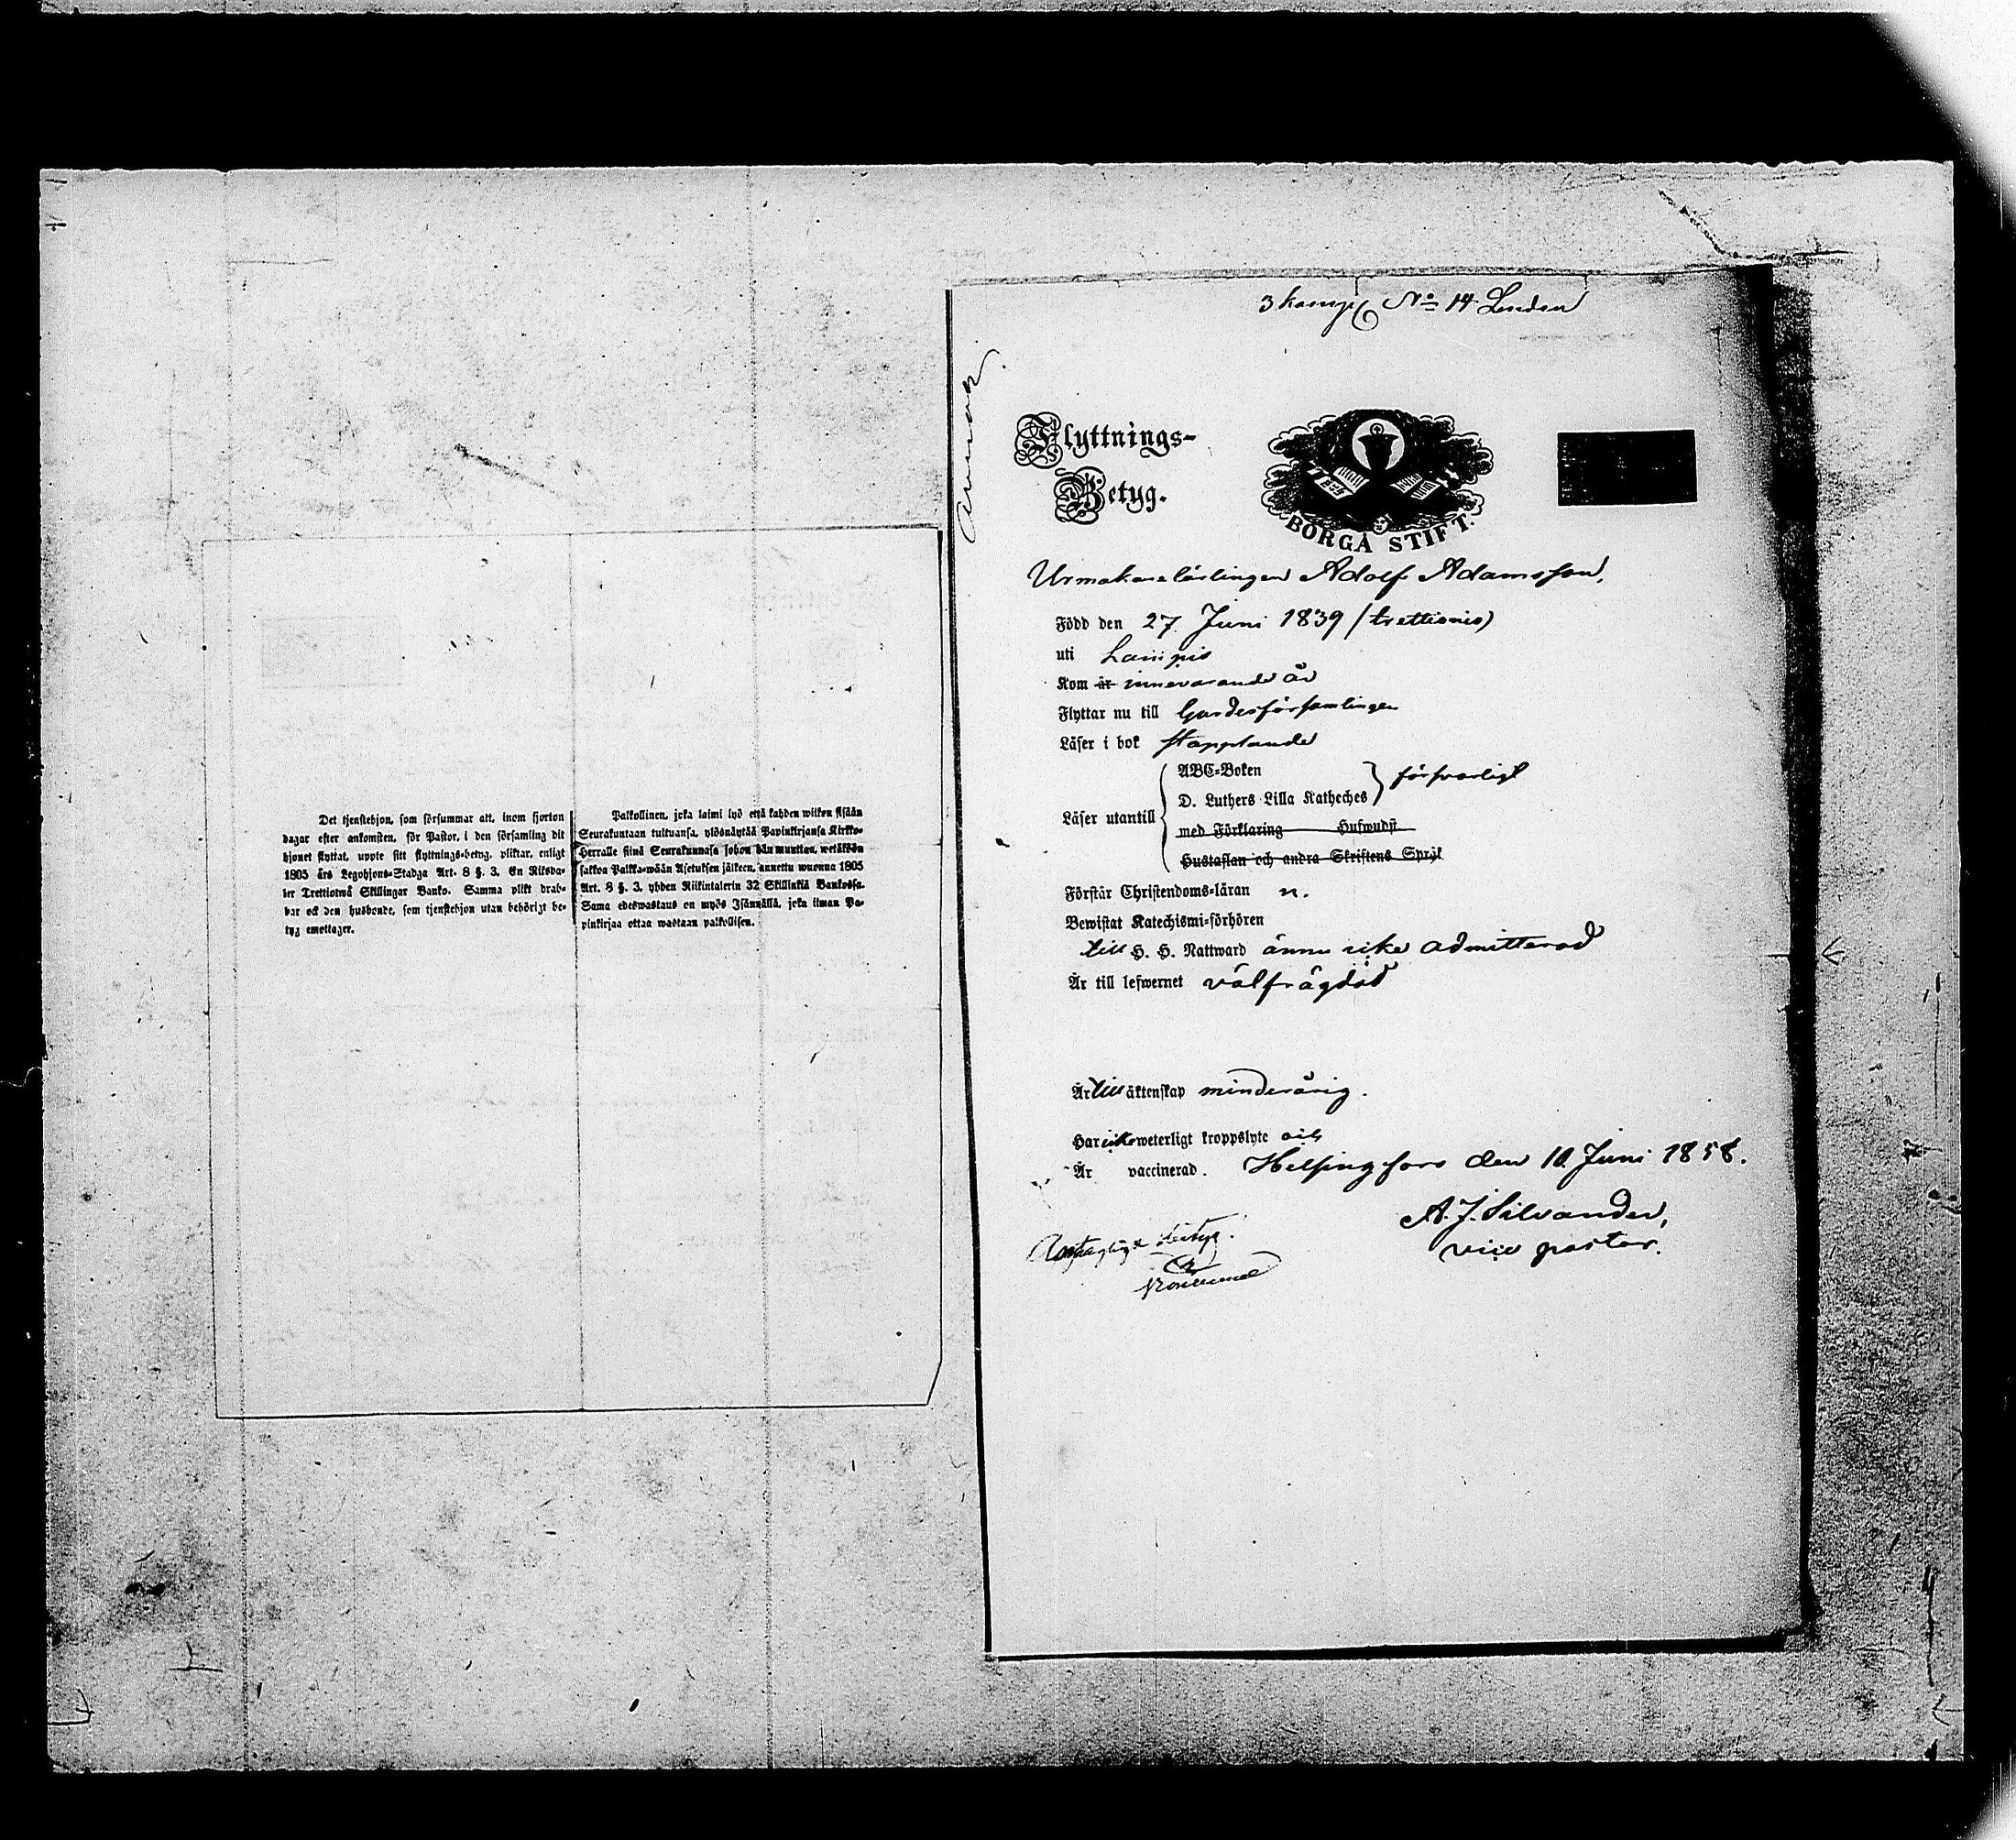 Det tjenstehjon, som försummar att, inom fjorton
dagar efter ankomsten, för Pastor, i den församling dit
hjonet flyttat, uppte sitt flyttnings-betyg, pliktar, enligt
1805 års Legohjons-Stadga Art. 8 §. 3, En Riksda-
ler Trettiotwå Skillingar Banko. Samma plikt drab-
bar ock den husbonde, som tjenstehjon utan behörigt be-
tyg emottager.
Palkollinen, joka laimi lyö että kahden wiikon sisään
Seurakuntaan tultuansa, ylösnäytää Papinkirjansa Kirkko-
Herralle siinä Seurakunnasa johon hän muuttaa, wetäköön
sakkoa Palkka-wään Asetuksen jälkeen, annettu wuonna 1805
Art. 8 §. 3, yhden Riikintalerin 32 Skillinkiä Bankossa.
Sama edeswastaus on myös Isännällä, joka ilman Pa-
pinkirjaa ottaa wastaan palkollisen.
3 komp No 14
Flyttnings-
Betyg.
BORGÅ STIFT.
Urmakarelärlingen Adolf Adamsson,
Född den 27 Juni 1839 (trettionio)
uti Lampis
Kom år innevarande år
Flyttar nu till Gardesförsamlingen
Läser i bok stapplande
ABC-Boken
D. Luthers Lilla Katheches försvarligt
Läser utantill
med Förklaring Hufwudst
Hustaflan och andra Skriftens Språk
Förstår Christendoms-läran n.
Bewistat Katechismi-förhören
till H. H. Nattward ännu icke admitterad
Är till lefwernet välfrägdad
Är till äktenskap minderårig.
Har icke weterligt kroppslyte
Är vaccinerad. Helsingfors den 10 Juni 1858.
A. J. Silvander,
vice pastor.